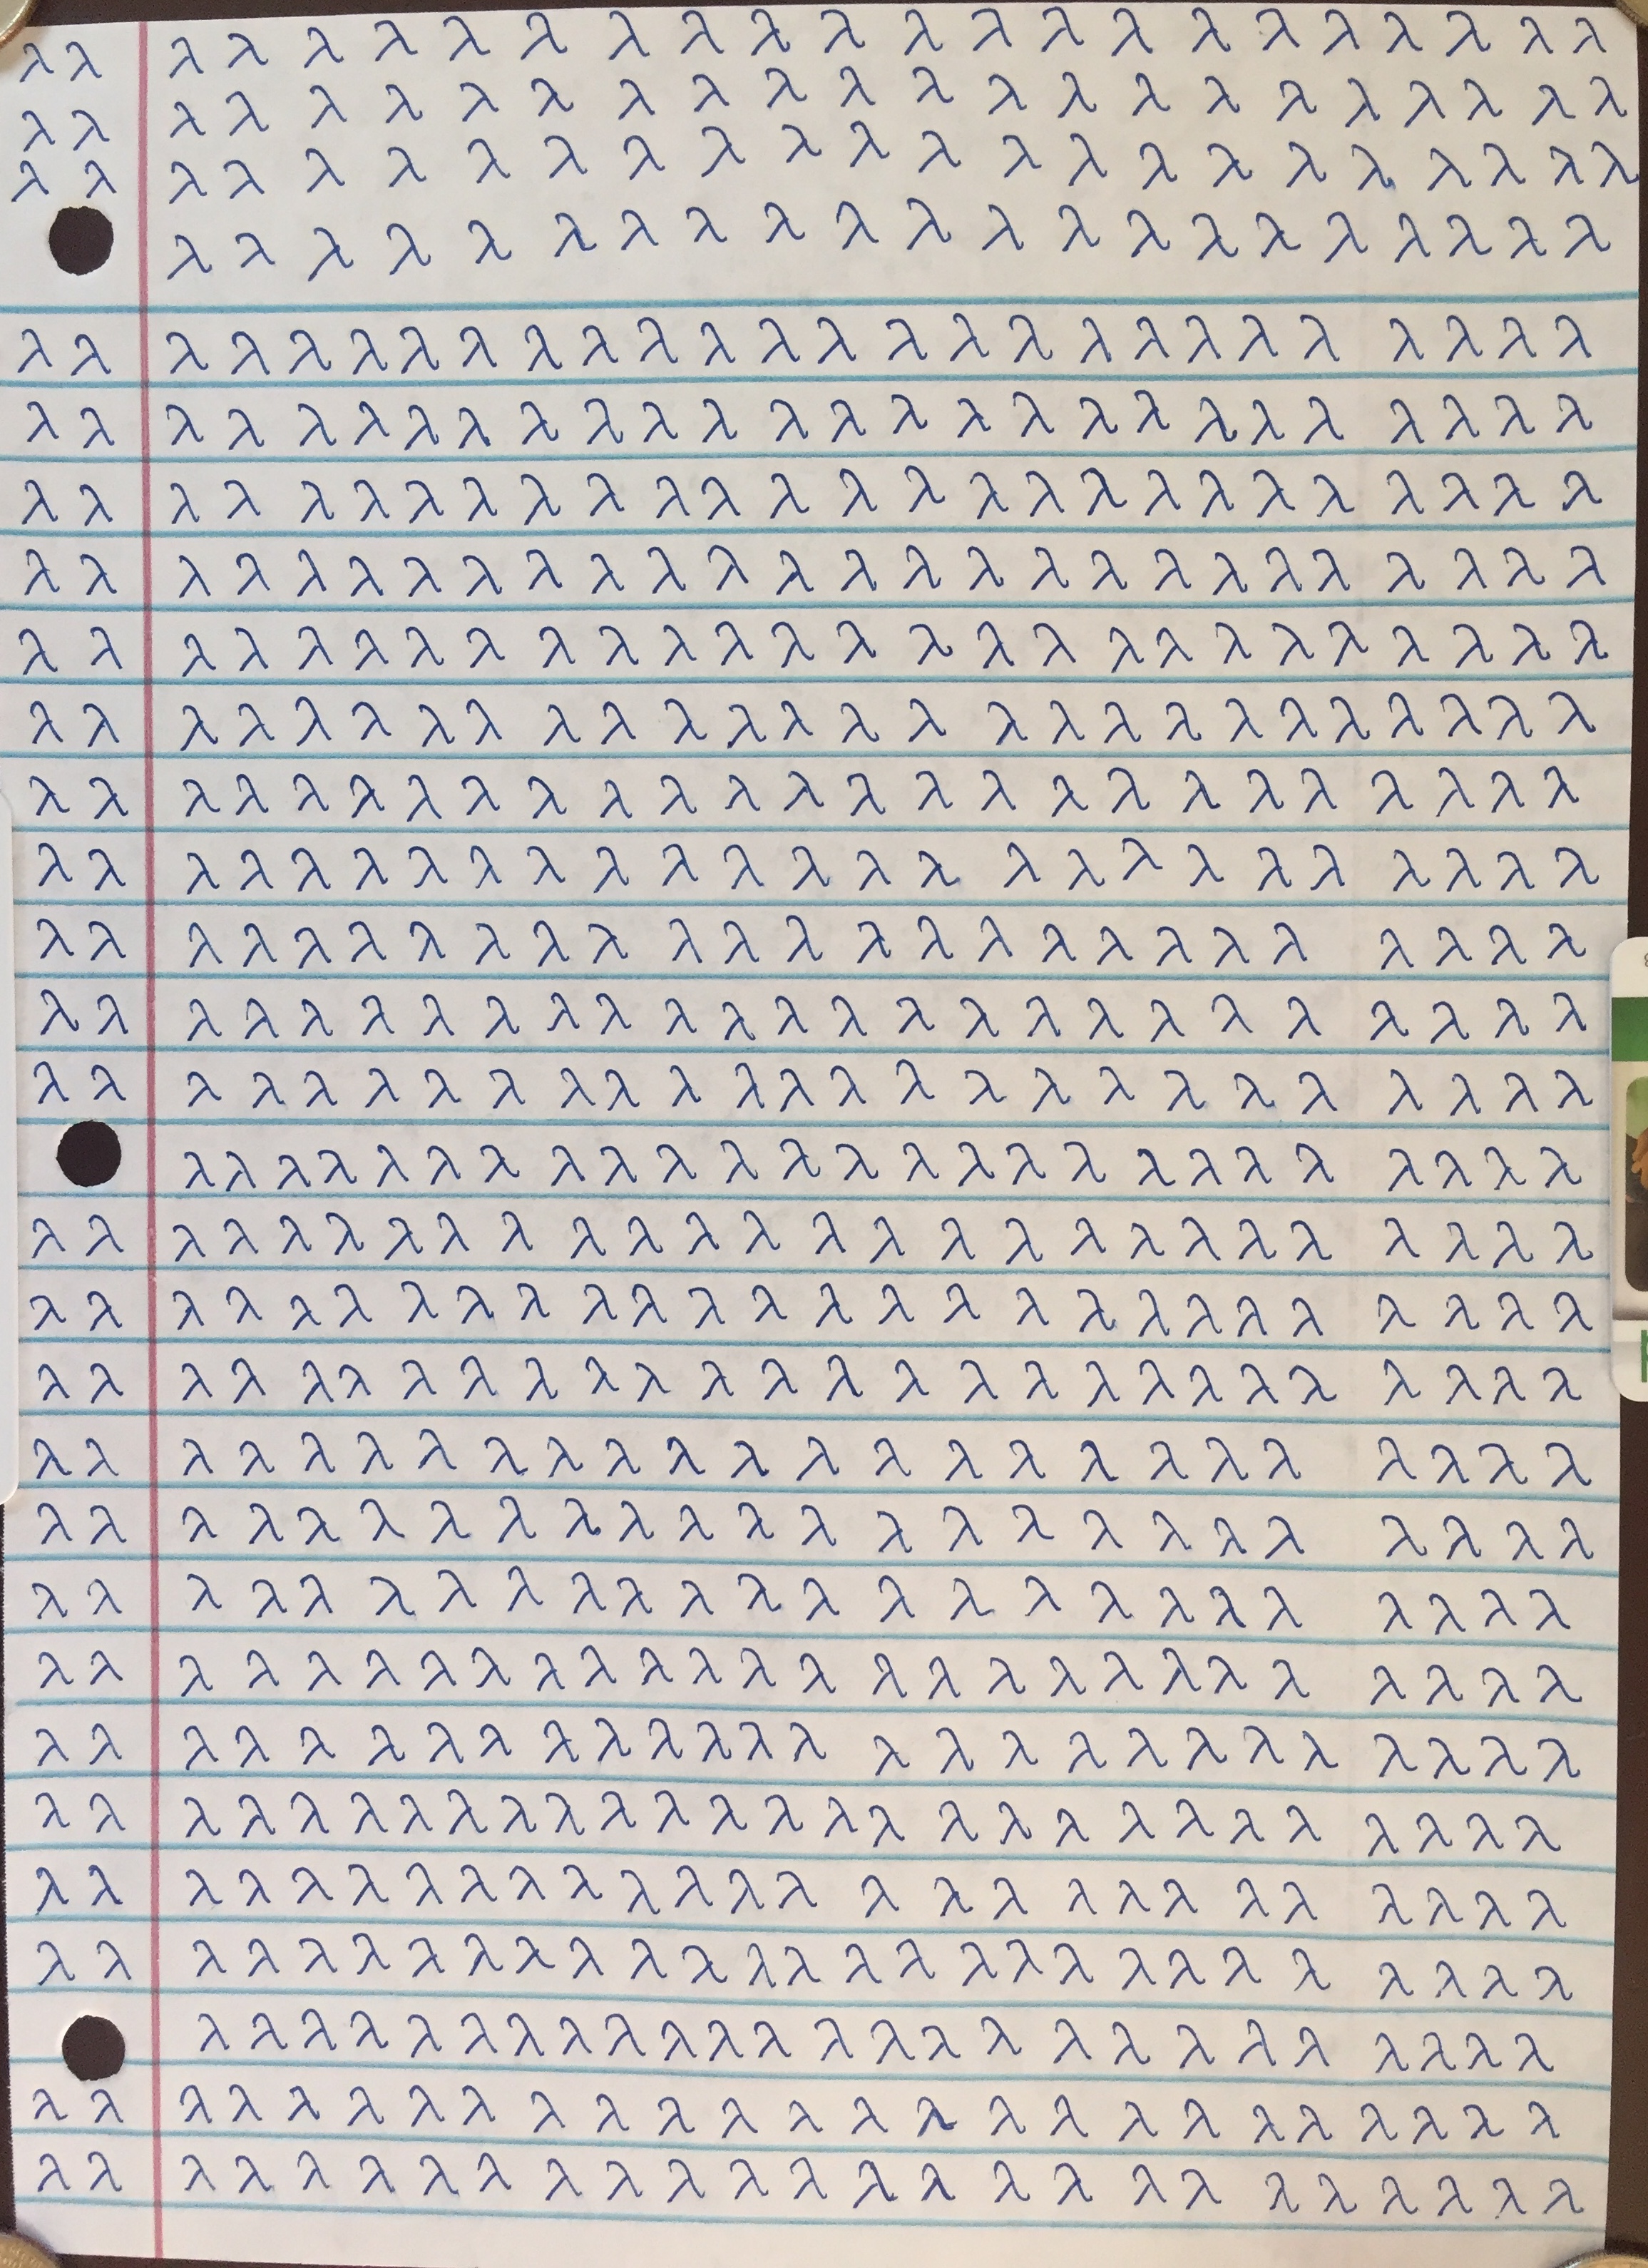 λ λ λ λ λ λ λ λ λ λ λ λ λ λ λ λ λ λ λ λ λ λ λ
λ λ λ λ λ λ λ λ λ λ λ λ λ λ λ λ λ λ λ λ λ λ λ
λ λ λ λ λ λ λ λ λ λ λ λ λ λ λ λ λ λ λ λ λ λ λ
λ λ λ λ λ λ λ λ λ λ λ λ λ λ λ λ λ λ λ λ λ
λ λ λ λ λ λ λ λ λ λ λ λ λ λ λ λ λ λ λ λ λ λ λ λ λ λ
λ λ λ λ λ λ λ λ λ λ λ λ λ λ λ λ λ λ λ λ λ λ λ λ λ λ
λ λ λ λ λ λ λ λ λ λ λ λ λ λ λ λ λ λ λ λ λ λ λ λ λ λ
λ λ λ λ λ λ λ λ λ λ λ λ λ λ λ λ λ λ λ λ λ λ λ λ λ λ
λ λ λ λ λ λ λ λ λ λ λ λ λ λ λ λ λ λ λ λ λ λ λ λ λ λ
λ λ λ λ λ λ λ λ λ λ λ λ λ λ λ λ λ λ λ λ λ λ λ λ λ λ
λ λ λ λ λ λ λ λ λ λ λ λ λ λ λ λ λ λ λ λ λ λ λ λ λ
λ λ λ λ λ λ λ λ λ λ λ λ λ λ λ λ λ λ λ λ λ λ λ λ λ
λ λ λ λ λ λ λ λ λ λ λ λ λ λ λ λ λ λ λ λ λ λ λ λ λ
λ λ λ λ λ λ λ λ λ λ λ λ λ λ λ λ λ λ λ λ λ λ λ λ λ
λ λ λ λ λ λ λ λ λ λ λ λ λ λ λ λ λ λ λ λ λ λ λ λ λ
λ λ λ λ λ λ λ λ λ λ λ λ λ λ λ λ λ λ λ λ λ λ λ λ λ
λ λ λ λ λ λ λ λ λ λ λ λ λ λ λ λ λ λ λ λ λ λ λ λ λ λ
λ λ λ λ λ λ λ λ λ λ λ λ λ λ λ λ λ λ λ λ λ λ λ λ λ λ
λ λ λ λ λ λ λ λ λ λ λ λ λ λ λ λ λ λ λ λ λ λ λ λ λ λ
λ λ λ λ λ λ λ λ λ λ λ λ λ λ λ λ λ λ λ λ λ λ λ λ
λ λ λ λ λ λ λ λ λ λ λ λ λ λ λ λ λ λ λ λ λ λ λ λ
λ λ λ λ λ λ λ λ λ λ λ λ λ λ λ λ λ λ λ λ λ λ λ λ
λ λ λ λ λ λ λ λ λ λ λ λ λ λ λ λ λ λ λ λ λ λ λ λ λ λ
λ λ λ λ λ λ λ λ λ λ λ λ λ λ λ λ λ λ λ λ λ λ λ λ λ λ
λ λ λ λ λ λ λ λ λ λ λ λ λ λ λ λ λ λ λ λ λ λ λ λ λ λ λ
λ λ λ λ λ λ λ λ λ λ λ λ λ λ λ λ λ λ λ λ λ λ λ λ λ λ
λ λ λ λ λ λ λ λ λ λ λ λ λ λ λ λ λ λ λ λ λ λ λ λ λ λ λ
λ λ λ λ λ λ λ λ λ λ λ λ λ λ λ λ λ λ λ λ λ λ λ λ λ
λ λ λ λ λ λ λ λ λ λ λ λ λ λ λ λ λ λ λ λ λ λ λ λ λ
λ λ λ λ λ λ λ λ λ λ λ λ λ λ λ λ λ λ λ λ λ λ λ λ λ